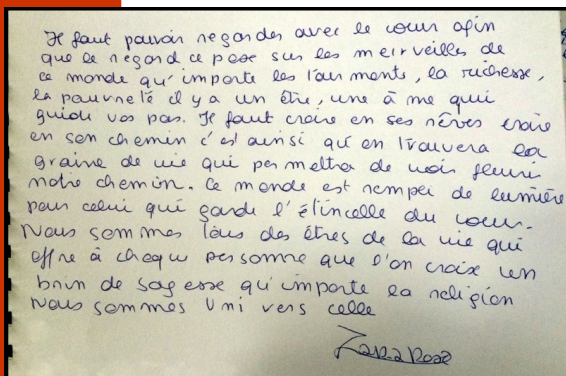 Il faut pouvoir regarder avec le cœur afin
que le regard ce pose sur les meirveilles de
ce monde qu'importe les tourments, la richesse,
la pauvreté il y a un être, une âme qui
guide vos pas. Il faut croire en ses rêves croire
en son chemin c'est ainsi qu'on trouvera la
graine de vie qui permettra de voir fleurir
notre chemin. Ce monde est rempei de lumière
pour celui qui garde l'étincelle du cœur.
Nous sommes tous des êtres de la vie qui
offre à chaque personne que l'on croix un
brin de sagesse qu'importe la religion
Nous sommes Uni vers celle